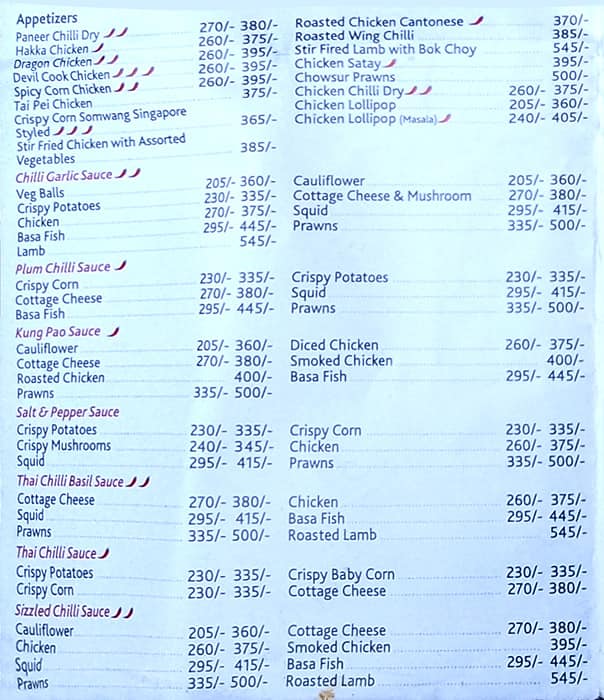 Appetizers
Paneer Chilli Dry 270/- 380/-
Hakka Chicken 260/- 375/-
Dragon Chicken 260/- 395/-
Devil Cook Chicken 260/- 395/-
Spicy Corn Chicken 260/- 395/-
Tai Pei Chicken 375/-
Crispy Corn Somwang Singapore
Styled 365/-
Stir Fried Chicken with Assorted
Vegetables 385/-
Roasted Chicken Cantonese 370/-
Roasted Wing Chilli 385/-
Stir Fired Lamb with Bok Choy 545/-
Chicken Satay 395/-
Chowsur Prawns 500/-
Chicken Chilli Dry 260/- 375/-
Chicken Lollipop 205/- 360/-
Chicken Lollipop (Masala) 240/- 405/-
Chilli Garlic Sauce
Veg Balls 205/- 360/-
Crispy Potatoes 230/- 335/-
Chicken 270/- 375/-
Basa Fish 295/- 445/-
Lamb 545/-
Cauliflower 205/- 360/-
Cottage Cheese & Mushroom 270/- 380/-
Squid 295/- 415/-
Prawns 335/- 500/-
Plum Chilli Sauce
Crispy Corn 230/- 335/-
Cottage Cheese 270/- 380/-
Basa Fish 295/- 445/-
Crispy Potatoes 230/- 335/-
Squid 295/- 415/-
Prawns 335/- 500/-
Kung Pao Sauce
Cauliflower 205/- 360/-
Cottage Cheese 270/- 380/-
Roasted Chicken 400/-
Prawns 335/- 500/-
Diced Chicken 260/- 375/-
Smoked Chicken 400/-
Basa Fish 295/- 445/-
Salt & Pepper Sauce
Crispy Potatoes 230/- 335/-
Crispy Mushrooms 240/- 345/-
Squid 295/- 415/-
Crispy Corn 230/- 335/-
Chicken 260/- 375/-
Prawns 335/- 500/-
Thai Chilli Basil Sauce
Cottage Cheese 270/- 380/-
Squid 295/- 415/-
Prawns 335/- 500/-
Chicken 260/- 375/-
Basa Fish 295/- 445/-
Roasted Lamb 545/-
Thai Chilli Sauce
Crispy Potatoes 230/- 335/-
Crispy Corn 230/- 335/-
Crispy Baby Corn 230/- 335/-
Cottage Cheese 270/- 380/-
Sizzled Chilli Sauce
Cauliflower 205/- 360/-
Chicken 260/- 375/-
Squid 295/- 415/-
Prawns 335/- 500/-
Cottage Cheese 270/- 380/-
Smoked Chicken 395/-
Basa Fish 295/- 445/-
Roasted Lamb 545/-